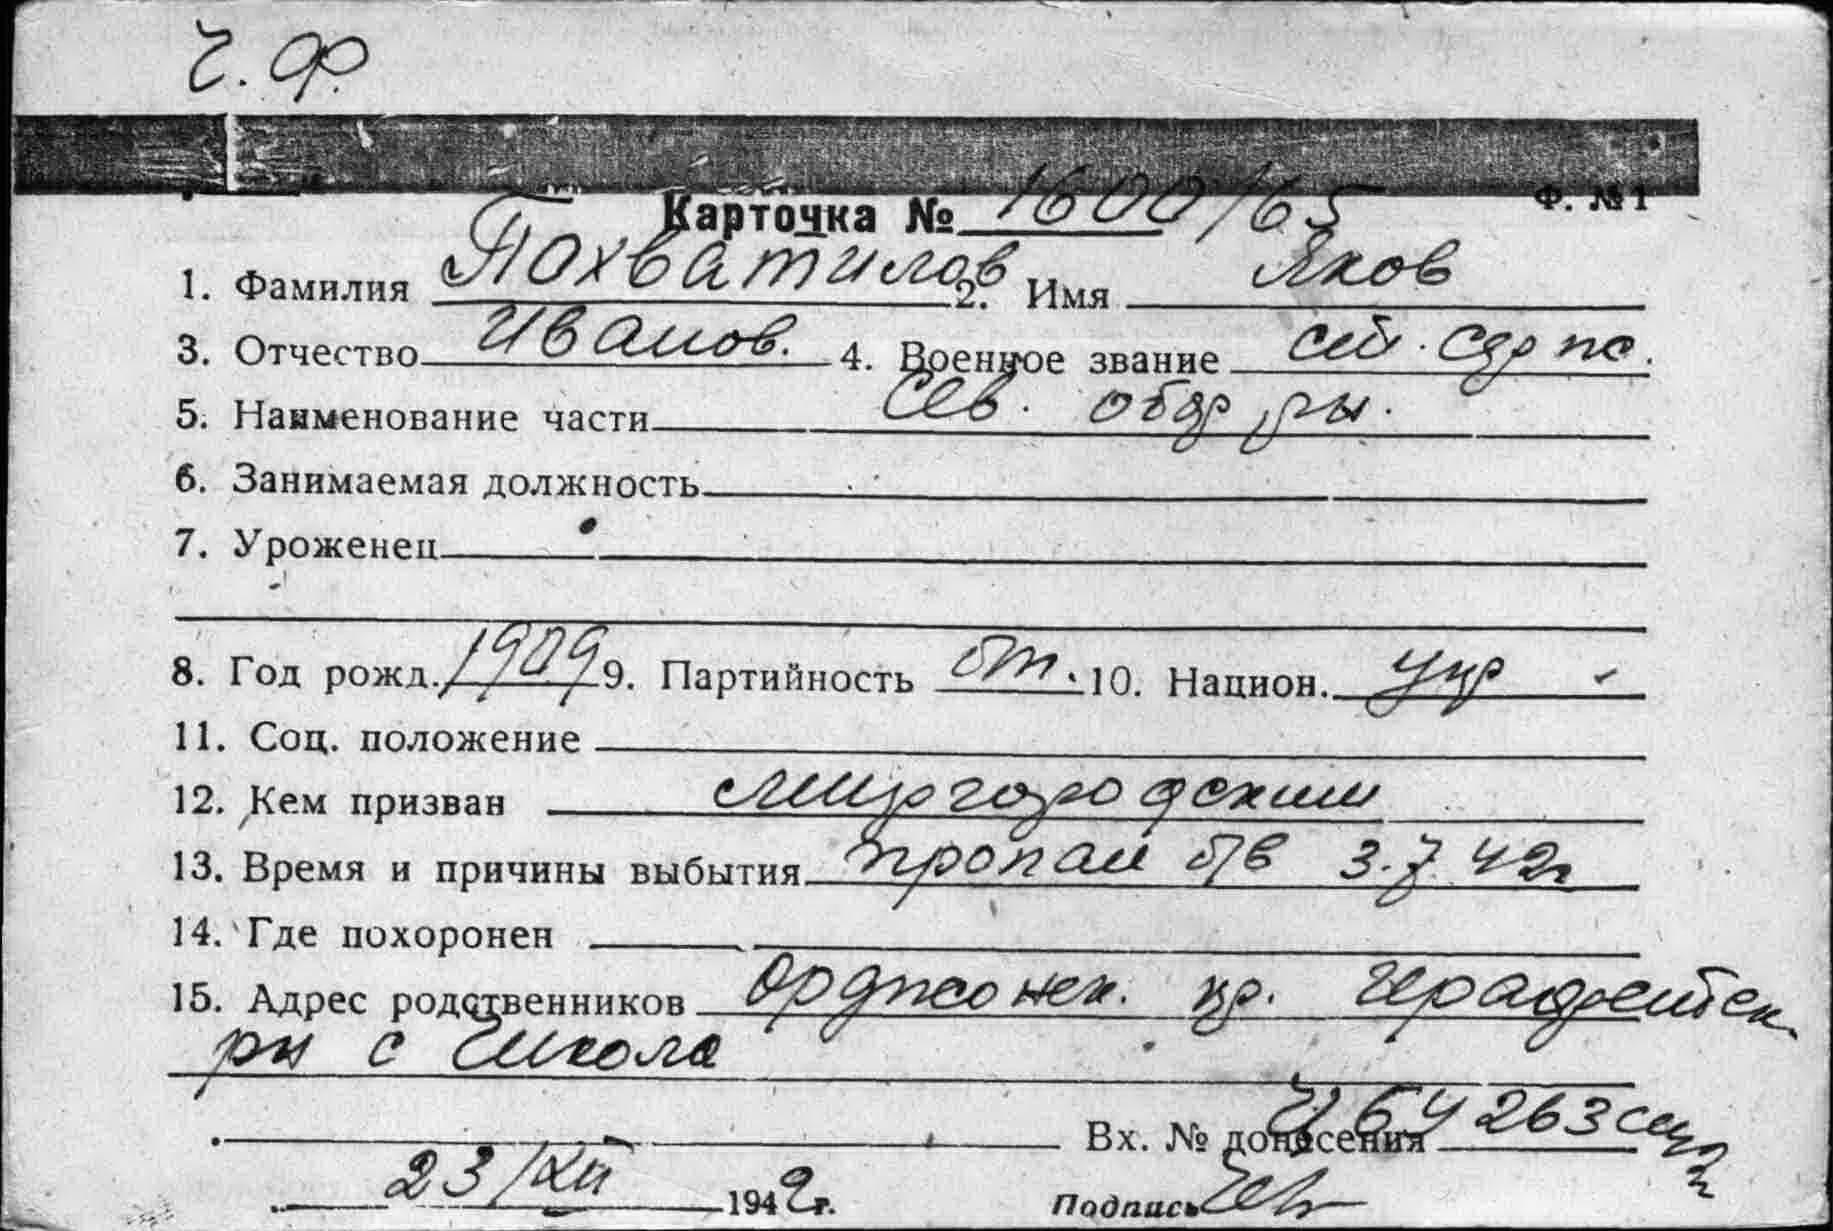 Ч.Ф.
Карточка № 1600/65 Ф. №1
1. Фамилия Похватилов 2. Имя Яков
3. Отчество Иванов. 4. Военное звание
5. Наименование части Сев. обор рн.
6. Занимаемая должность
7. Уроженец
8. Год рожд. 1909 9. Партийность 10. Национ. укр
11. Соц. положение
12. Кем призван Миргородским
13. Время и причины выбытия пропал б/в 3.7.42г
14. Где похоронен
15. Адрес родственников Орджонек. кр.
рн с Школа
Вх. № донесения 263
23/XII 1942г. Подпись